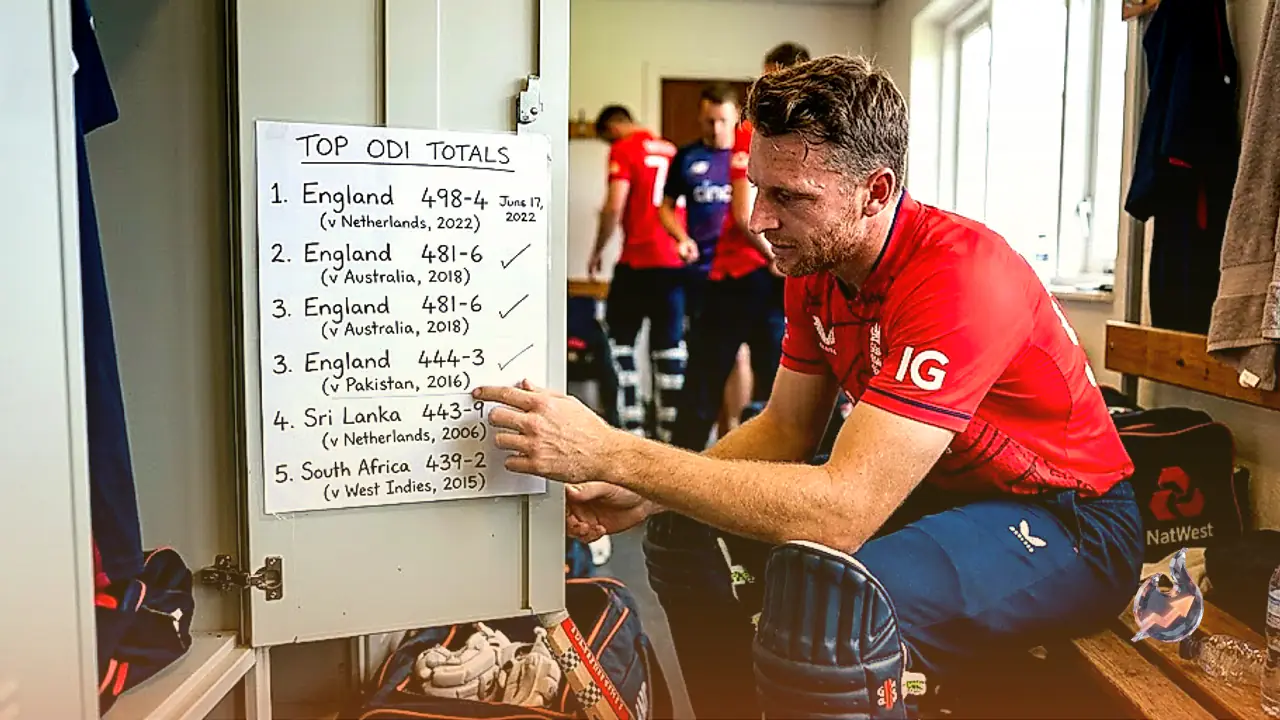 TOP ODI TOTALS
1. England 498-4 June 17, 2022
(v Netherlands, 2022)
2. England 481-6 ✓
(v Australia, 2018)
3. England 481-6 ✓
(v Australia, 2018)
3. England 444-3 ✓
(v Pakistan, 2016)
4. Sri Lanka 443-9
(v Netherlands, 2006)
5. South Africa 439-2
(v West Indies, 2015)
7
cinc
IG
NatWest